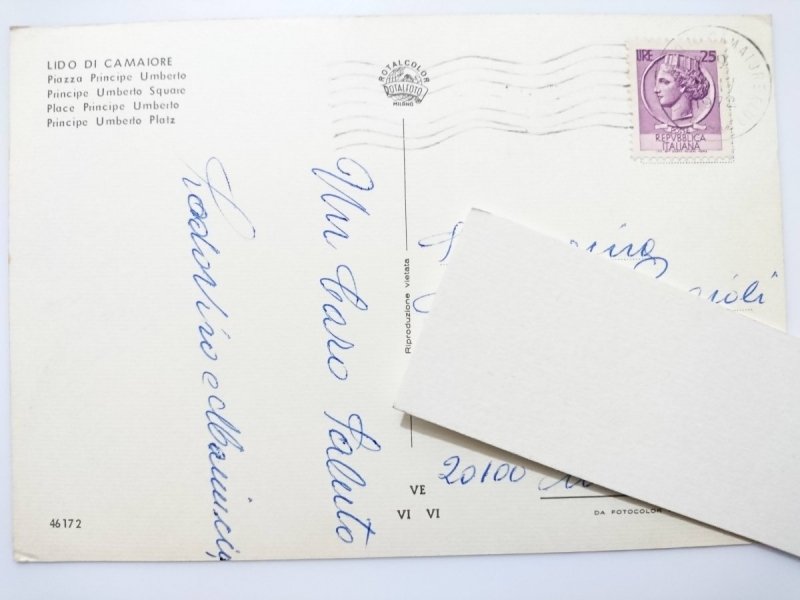 LIDO DI CAMAIORE
Piazza Principe Umberto
Principe Umberto Square
Place Principe Umberto
Principe Umberto Platz
ROTALCOLOR
ROTALFOTO
MILANO
LIRE 25
REPVBBLICA
ITALIANA
Un Caro Saluto
Lodovico e
Riproduzione vietata
20100
VE
VI VI
DA FOTOCOLOR
46172